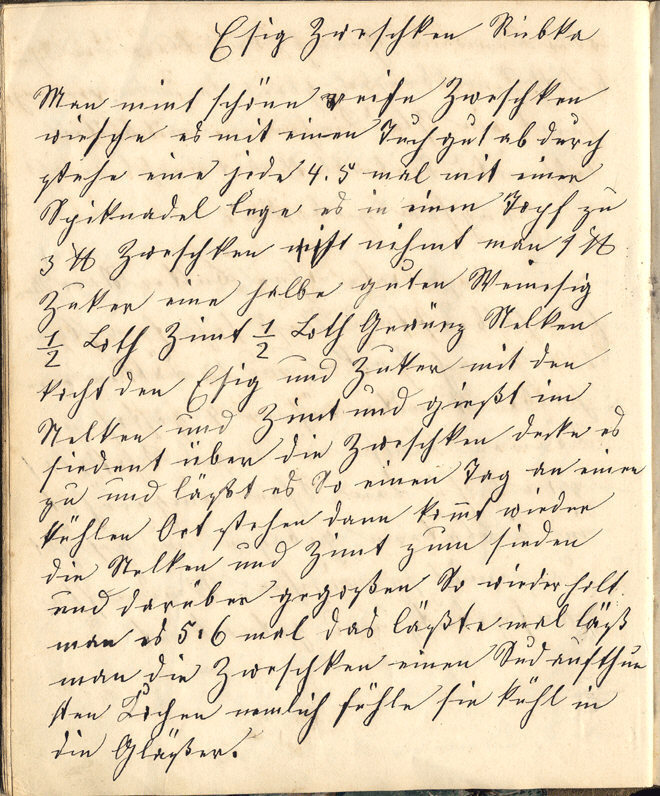 Esig Zweschken Ribka
Man nimt schöne reife Zweschken
wische es mit einen Tuch gut ab durch
stehe eine jede 4. 5 mal mit einer
Spiknadel lege es in einen Topf zu
3 ℔ Zweschken nehmt man 1 ℔
Zuker eine halbe guten Weinesig
1/2 Loth Zimt 1/2 Loth Gewürz Nelken
kocht den Esig und Zuker mit den
Nelken und Zimt und gießt im
siedent über die Zweschken decke es
zu und läßt es So einen Tag an einen
kühlen Ort stehen dann komt wieder
die Nelken und Zimt zum sieden
und darüber gegoßen So wiederholt
man es 5.6 mal das läßte mal läß
man die Zweschken einen Sud aufthun
sten Kochen nemlich fühle sie kühl in
die Gläßer.